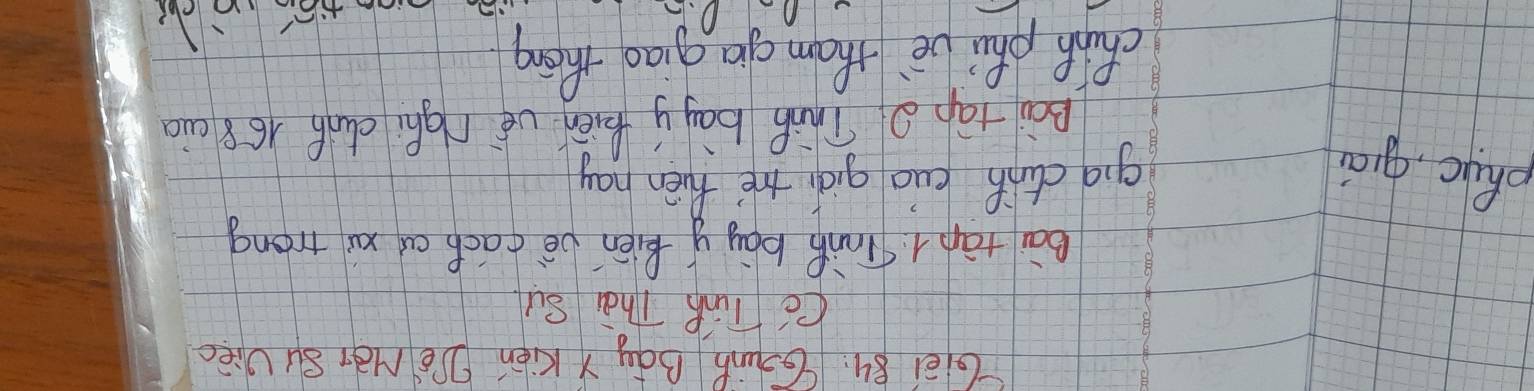 Tiết 84: Trình Bày Ý Kiến Về Một Sự Việc
Có Tính Thời Sự
Bài tập 1: Trình bày ý kiến về cách cư xử trong
gia đình của giới trẻ hiện nay
Bài tập 2: Trình bày ý kiến về Nghị định 168 của
chính phủ về tham gia giao thông.
phục, giải